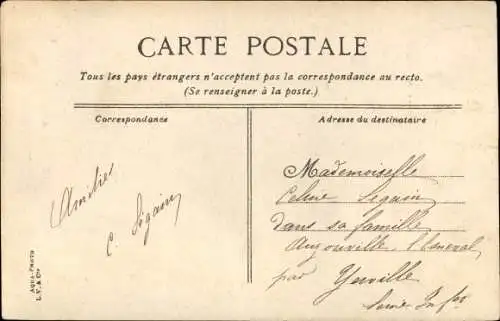 CARTE POSTALE
Tous les pays étrangers n'acceptent pas la correspondance au recto.
(Se renseigner à la poste.)
Correspondance
Adresse du destinataire
Amitiés
C. Séguin
Mademoiselle
Celine Séguin
dans sa famille
Auzouville l'Esneval
par Yerville
Seine Infre
AQUA-PHOTO
L.V. & Cie